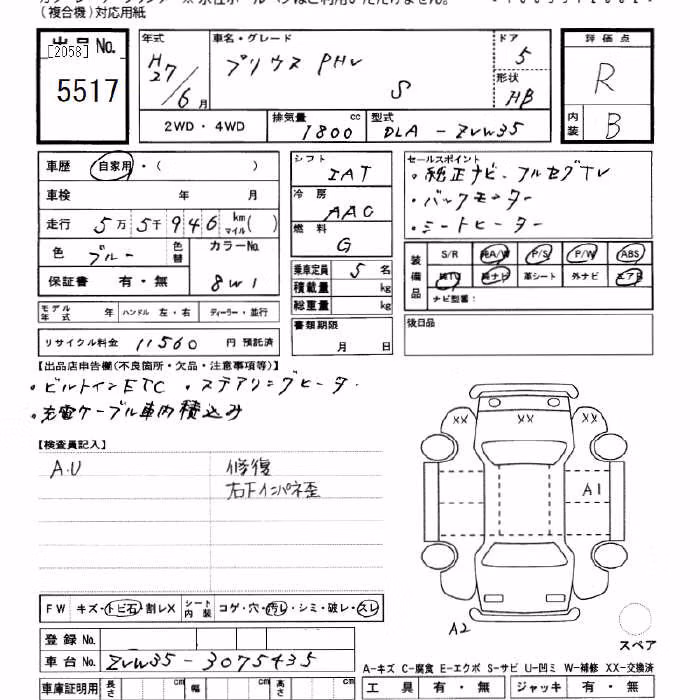 (複合機)対応用紙
出品No.
[2058]
5517
年式 H27/6月
車名・グレード プリウス PHV S
ドア 5
形状 HB
評価点 R
内装 B
2WD・4WD
排気量 1800 cc
型式 DLA-ZVW35
車歴 自家用・( )
車検 年 月
走行 5万5千946 km マイル( )
色 ブルー 色替 カラーNo. 8W1
保証書 有・無
シフト IAT
冷房 AAC
燃料 G
乗車定員 5 名
積載量 kg
総重量 kg
セールスポイント
・純正ナビ フルセグTV
・バックモニター
・シートヒーター
装備品 S/R 純A/W P/S P/W ABS
純TV 純ナビ 革シート 外ナビ エアB
ナビ型番:
モデル年式 年 ハンドル 左・右 ディーラー・並行
書類期限 月 日
後日品
リサイクル料金 11560 円 預託済
【出品店申告欄(不良箇所・欠品・注意事項等)】
・ビルトインETC ・ステアリングヒーター
・充電ケーブル車内積込み
【検査員記入】
A.U 修復
右下インパネ歪
XX XX
A1
A2
スペア
FW キズ・トビ石・割レX シート内装 コゲ・穴・汚レ・シミ・破レ・スレ
登録No.
車台No. ZVW35-3075435
A-キズ C-腐食 E-エクボ S-サビ U-凹ミ W-補修 XX-交換済
車庫証明用 長さ cm 幅 cm 高さ cm
工具 有・無 ジャッキ 有・無